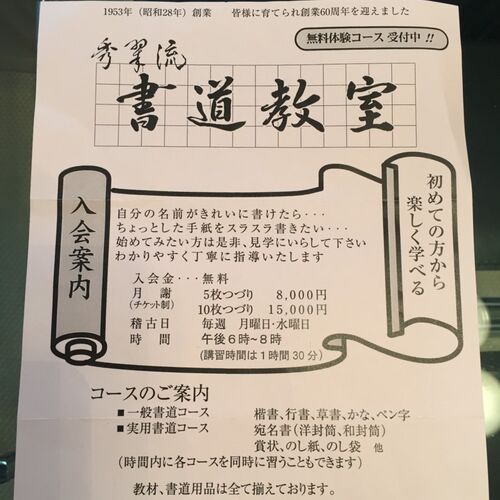 1953年（昭和28年）創業　皆様に育てられ創業60周年を迎えました
無料体験コース 受付中 !!
秀翠流
書道教室
初めての方から
楽しく学べる
入会案内
自分の名前がきれいに書けたら・・・
ちょっとした手紙をスラスラ書きたい・・・
始めてみたい方は是非、見学にいらして下さい
わかりやすく丁寧に指導いたします
入会金・・・無料
月謝　5枚つづり　8,000円
(チケット制)　10枚つづり　15,000円
稽古日　毎週　月曜日・水曜日
時間　午後6時~8時
(講習時間は1時間30分)
コースのご案内
■一般書道コース　楷書、行書、草書、かな、ペン字
■実用書道コース　宛名書(洋封筒、和封筒)
賞状、のし紙、のし袋　他
(時間内に各コースを同時に習うこともできます)
教材、書道用品は全て揃えております。